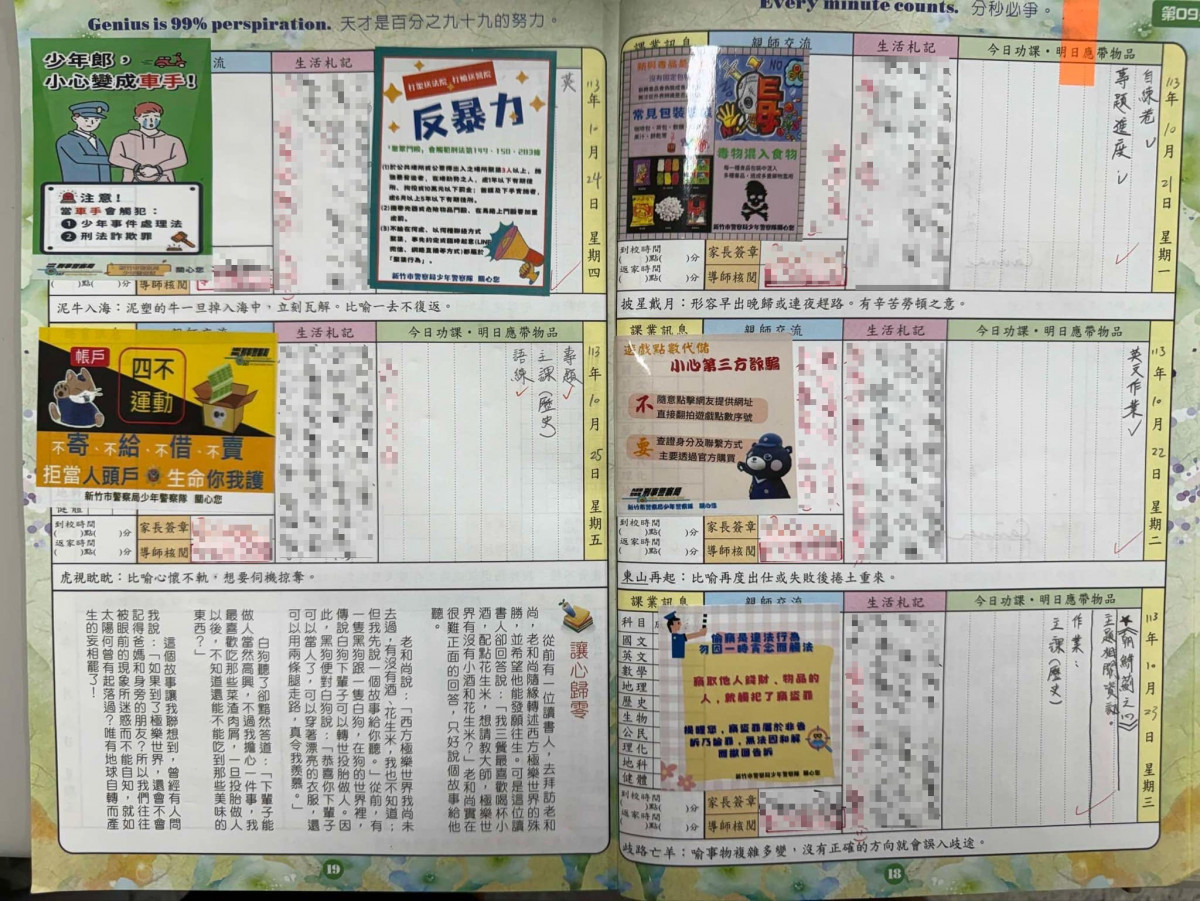 Every minute counts. 分秒必爭。
第09
課業訊息
親師交流
生活札記
今日功課・明日應帶物品
113年10月21日 星期一
自練卷
專題進度
常見包裝
毒物混入食物
新竹市警察局少年警察隊 關心您
到校時間
( )點( )分
返家時間
( )點( )分
家長簽章
導師核閱
披星戴月：形容早出晚歸或連夜趕路。有辛苦勞頓之意。
課業訊息
親師交流
生活札記
今日功課・明日應帶物品
113年10月22日 星期二
英文作業
遊戲點數代儲
小心第三方詐騙
不
隨意點擊網友提供網址
直接翻拍遊戲點數序號
要
查證身分及聯繫方式
主要透過官方購買
新竹市警察局少年警察隊 關心您
到校時間
( )點( )分
返家時間
( )點( )分
家長簽章
導師核閱
東山再起：比喻再度出仕或失敗後捲土重來。
課業訊息
親師交流
生活札記
今日功課・明日應帶物品
113年10月23日 星期三
主題相關資料。
作業：
主課(歷史)
科目
國文
英文
數學
地理
歷史
生物
公民
理化
地科
健體
偷竊是違法行為
勿因一時貪念誤觸法
竊取他人錢財、物品的
人，就觸犯了竊盜罪
提醒您，竊盜罪屬於非告
訴乃論罪，無法因和解
而撤回告訴
新竹市警察局少年警察隊 關心您
到校時間
( )點( )分
返家時間
( )點( )分
家長簽章
導師核閱
歧路亡羊：喻事物複雜多變，沒有正確的方向就會誤入歧途。
18
Genius is 99% perspiration. 天才是百分之九十九的努力。
流
生活札記
113年10月24日 星期四
英
少年郎，
小心變成車手！
注意！
當車手會觸犯：
1 少年事件處理法
2 刑法詐欺罪
關心您
打架送法院，打輸送醫院
反暴力
「聚眾鬥毆」會觸犯刑法第149、150、283條
新竹市警察局少年警察隊 關心您
泥牛入海：泥塑的牛一旦掉入海中，立刻瓦解。比喻一去不復返。
生活札記
今日功課・明日應帶物品
113年10月25日 星期五
專題
主課(歷史)
語練
帳戶
四不
運動
不寄、不給、不借、不賣
拒當人頭戶 生命你我護
新竹市警察局少年警察隊 關心您
健體
到校時間
( )點( )分
返家時間
( )點( )分
家長簽章
導師核閱
虎視眈眈：比喻心懷不軌，想要伺機掠奪。
讓心歸零
從前有一位讀書人，去拜訪老和
尚，老和尚隨緣轉述西方極樂世界的殊
勝，並希望他能發願往生。可是這位讀
書人卻回答說：「我三餐最喜歡喝杯小
酒，配點花生米，想請教大師，極樂世
界有沒有小酒和花生米？」老和尚實在
很難正面的回答，只好說個故事給他
聽。
老和尚說：「西方極樂世界我尚未
去過，有沒有酒、花生米，我也不知道；
但我先說一個故事給你聽。」從前，有
一隻黑狗跟一隻白狗，在狗的世界裡，
傳說白狗下輩子可以轉世投胎做人。因
此，黑狗便對白狗說：「恭喜你下輩子
可以當人了，可以穿著漂亮的衣服，還
可以用兩條腿走路，真令我羨慕。」
白狗聽了卻黯然答道：「下輩子能
做人當然高興，不過我擔心一件事，我
最喜歡吃那些菜渣肉屑，一旦投胎做人
以後，不知道還能不能吃到那些美味的
東西？」
這個故事讓我聯想到，曾經有人問
我說：「如果到了極樂世界，還會不會
記得爸媽和身旁的朋友？」所以我們往往
被眼前的現象所迷惑而不能自知，就如
太陽何曾有起落過？唯有地球自轉而產
生的妄相罷了！
19